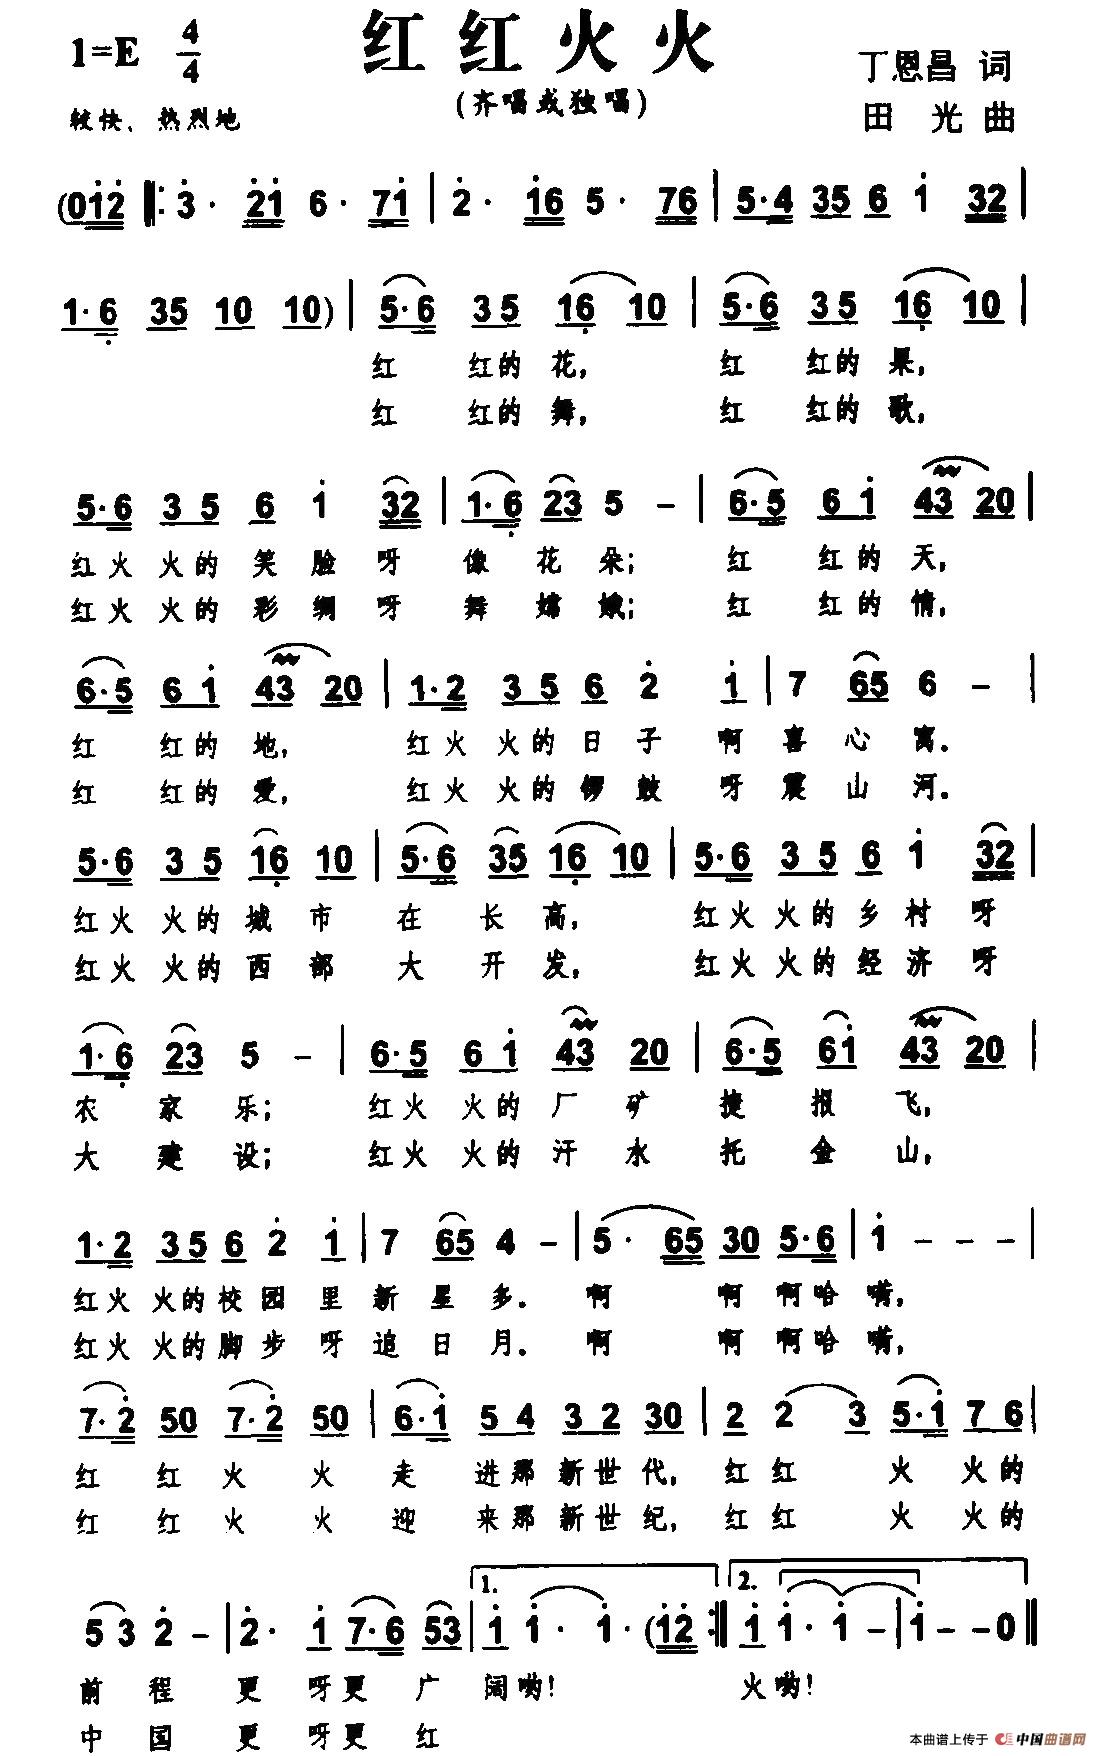 红红火火
1=E 4/4
(齐唱或独唱)
丁恩昌 词
较快、热烈地
田 光 曲
(012 ‖: 3· 21 6· 71 | 2· 16 5· 76 | 5·4 35 6 1 32 |
1·6 35 10 10) | 5·6 35 16 10 | 5·6 35 16 10 |
红 红的 花， 红 红的 果，
红 红的 舞， 红 红的 歌，
5·6 35 6 1 32 | 1·6 23 5 - | 6·5 61 43 20 |
红火 火的 笑 脸 呀 像 花 朵； 红 红的 天，
红火 火的 彩 绸 呀 舞 嫦 娥； 红 红的 情，
6·5 61 43 20 | 1·2 35 6 2 1 | 7 65 6 - |
红 红的 地， 红火 火的 日 子 啊 喜 心 窝。
红 红的 爱， 红火 火的 锣 鼓 呀 震 山 河。
5·6 35 16 10 | 5·6 35 16 10 | 5·6 35 6 1 32 |
红火 火的 城 市 在 长 高， 红火 火的 乡 村 呀
红火 火的 西 部 大 开 发， 红火 火的 经 济 呀
1·6 23 5 - | 6·5 61 43 20 | 6·5 61 43 20 |
农 家 乐； 红火 火的 厂 矿 捷 报 飞，
大 建 设； 红火 火的 汗 水 托 金 山，
1·2 35 6 2 1 | 7 65 4 - | 5· 65 30 5·6 | 1 - - - |
红火 火的 校 园 里 新 星 多。 啊 啊 啊哈 嗬，
红火 火的 脚 步 呀 追 日 月。 啊 啊 啊哈 嗬，
7·2 50 7·2 50 | 6·1 54 32 30 | 2 2 3 5·1 76 |
红 红 火 火 走 进那 新世 代， 红 红 火 火的
红 红 火 火 迎 来那 新世 纪， 红 红 火 火的
53 2 - | 2· 1 7·6 53 | 1. 1 1· 1· (12 :‖ 2. 1 1· 1 - | 1 - - 0 ‖
前 程 更 呀更 广 阔 哟！ 火 哟！
中 国 更 呀更 红
本曲谱上传于 中国曲谱网